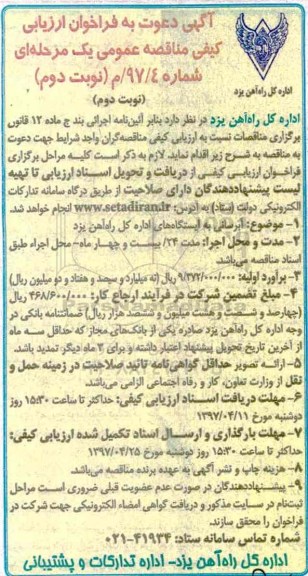 آگهی دعوت به فراخوان ارزیابی
کیفی مناقصه عمومی یک مرحله‌ای
شماره ۹۷/۴/م (نوبت دوم)
اداره کل راه‌آهن یزد
(نوبت دوم)
اداره کل راه‌آهن یزد در نظر دارد بنابر آئین‌نامه اجرائی بند ج ماده ۱۲ قانون
برگزاری مناقصات نسبت به ارزیابی کیفی مناقصه‌گران واجد شرایط جهت دعوت
به مناقصه به شرح زیر اقدام نماید. لازم به ذکر است کلیه مراحل برگزاری
فراخوان ارزیابی کیفی از دریافت و تحویل اسناد ارزیابی تا تهیه
لیست پیشنهاددهندگان دارای صلاحیت از طریق درگاه سامانه تدارکات
الکترونیکی دولت (ستاد) به آدرس: www.setadiran.ir انجام خواهد شد.
۱- موضوع: آبرسانی به ایستگاه‌های اداره کل راه‌آهن یزد
۲- مدت و محل اجرا: مدت ۲۴/ بیست و چهار ماه- محل اجراء طبق
اسناد مناقصه می‌باشد.
۳- برآورد اولیه: ۹/۳۷۲/۰۰۰/۰۰۰ ریال (نه میلیارد و سیصد و هفتاد و دو میلیون ریال)
۴- مبلغ تضمین شرکت در فرآیند ارجاع کار: ۴۶۸/۶۰۰/۰۰۰ ریال
(چهارصد و شصت و هشت میلیون و ششصد هزار ریال) ضمانتنامه بانکی در
وجه اداره کل راه‌آهن یزد صادره یکی از بانک‌های مجاز که حداقل سه ماه
از آخرین تاریخ تحویل پیشنهاد اعتبار داشته و برای ۳ ماه دیگر تمدید باشد.
۵- ارائه تصویر حداقل گواهی‌نامه تائید صلاحیت در زمینه حمل و
نقل از وزارت تعاون، کار و رفاه اجتماعی الزامی می‌باشد.
۶- مهلت دریافت اسناد ارزیابی کیفی: حداکثر تا ساعت ۱۵:۳۰ روز
دوشنبه مورخ ۱۳۹۷/۰۴/۱۱
۷- مهلت بارگذاری و ارسال اسناد تکمیل شده ارزیابی کیفی:
حداکثر تا ساعت ۱۵:۳۰ روز دوشنبه مورخ ۱۳۹۷/۰۴/۲۵
۸- هزینه چاپ و نشر آگهی به عهده برنده مناقصه می‌باشد.
۹- پیشنهاددهندگان در صورت عدم عضویت قبلی ضروری است مراحل
ثبت‌نام در سایت مذکور و دریافت گواهی امضاء الکترونیکی جهت شرکت در
فراخوان را محقق سازند.
شماره تماس سامانه ستاد: ۴۱۹۳۴-۰۲۱
اداره کل راه‌آهن یزد- اداره تدارکات و پشتیبانی